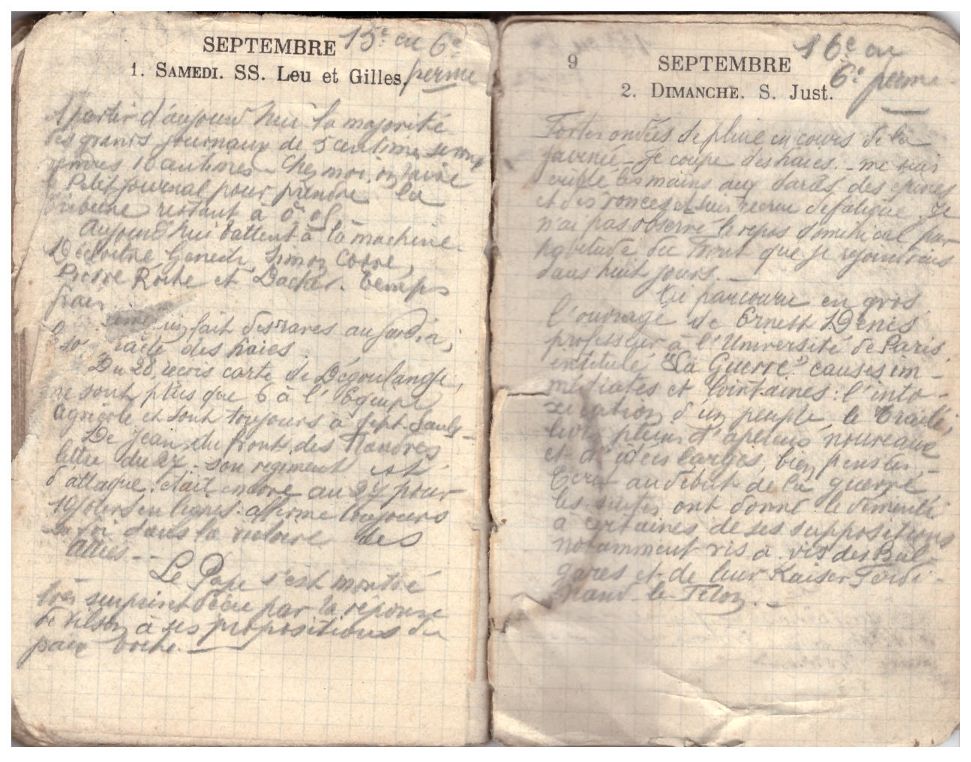 SEPTEMBRE 15e ou 6e
1. SAMEDI. SS. Leu et Gilles, perme
A partir d'aujourd'hui la majorité
des grands journaux de 5 centimes
10 centimes. Chez moi, on
le Petit journal pour prendre la
tribune restant à 0.05
Aujourd'hui battent à la machine
Simon
Pierre et Temps
frais
fait des raves au jardin,
taille des haies.
Du 28 reçois carte de
ne sont plus que 6 à l'Equipe
Agricole et sont toujours à Sept-Saulx
De Jean, du front des Flandres
lettre du 27. son regiment est
d'attaque. était encore au 27 pour
en lignes. affirme toujours
sa foi dans la victoire des
Alliés.
Le Pape s'est montré
très surpris déçu par la réponse
de Wilson à ses propositions de
paix boche.
9 SEPTEMBRE 16e ou
2. DIMANCHE. S. Just. 6e perme
Fortes ondées de pluie en cours de la
journée. Je coupe des haies. me suis
les mains aux dards des épines
et des ronces et suis recru de fatigue. Je
n'ai pas observé le repos dominical par
habitude du front que je rejoindrais
dans huit jours.
Ai parcouru en gros
l'ouvrage de Ernest Denis
professeur à l'Université de Paris,
intitulé "La Guerre" causes im-
médiates et lointaines: l'into-
xication d'un peuple. le Traité;
livre plein d'aperçus nouveaux
et d'idées larges, bien pensées,
Ecrit au début de la guerre
les suites ont donné le démenti
à certaines de ses suppositions
notamment vis à vis des Bul
gares et de leur Kaiser Ferdi-
nand le Félon.